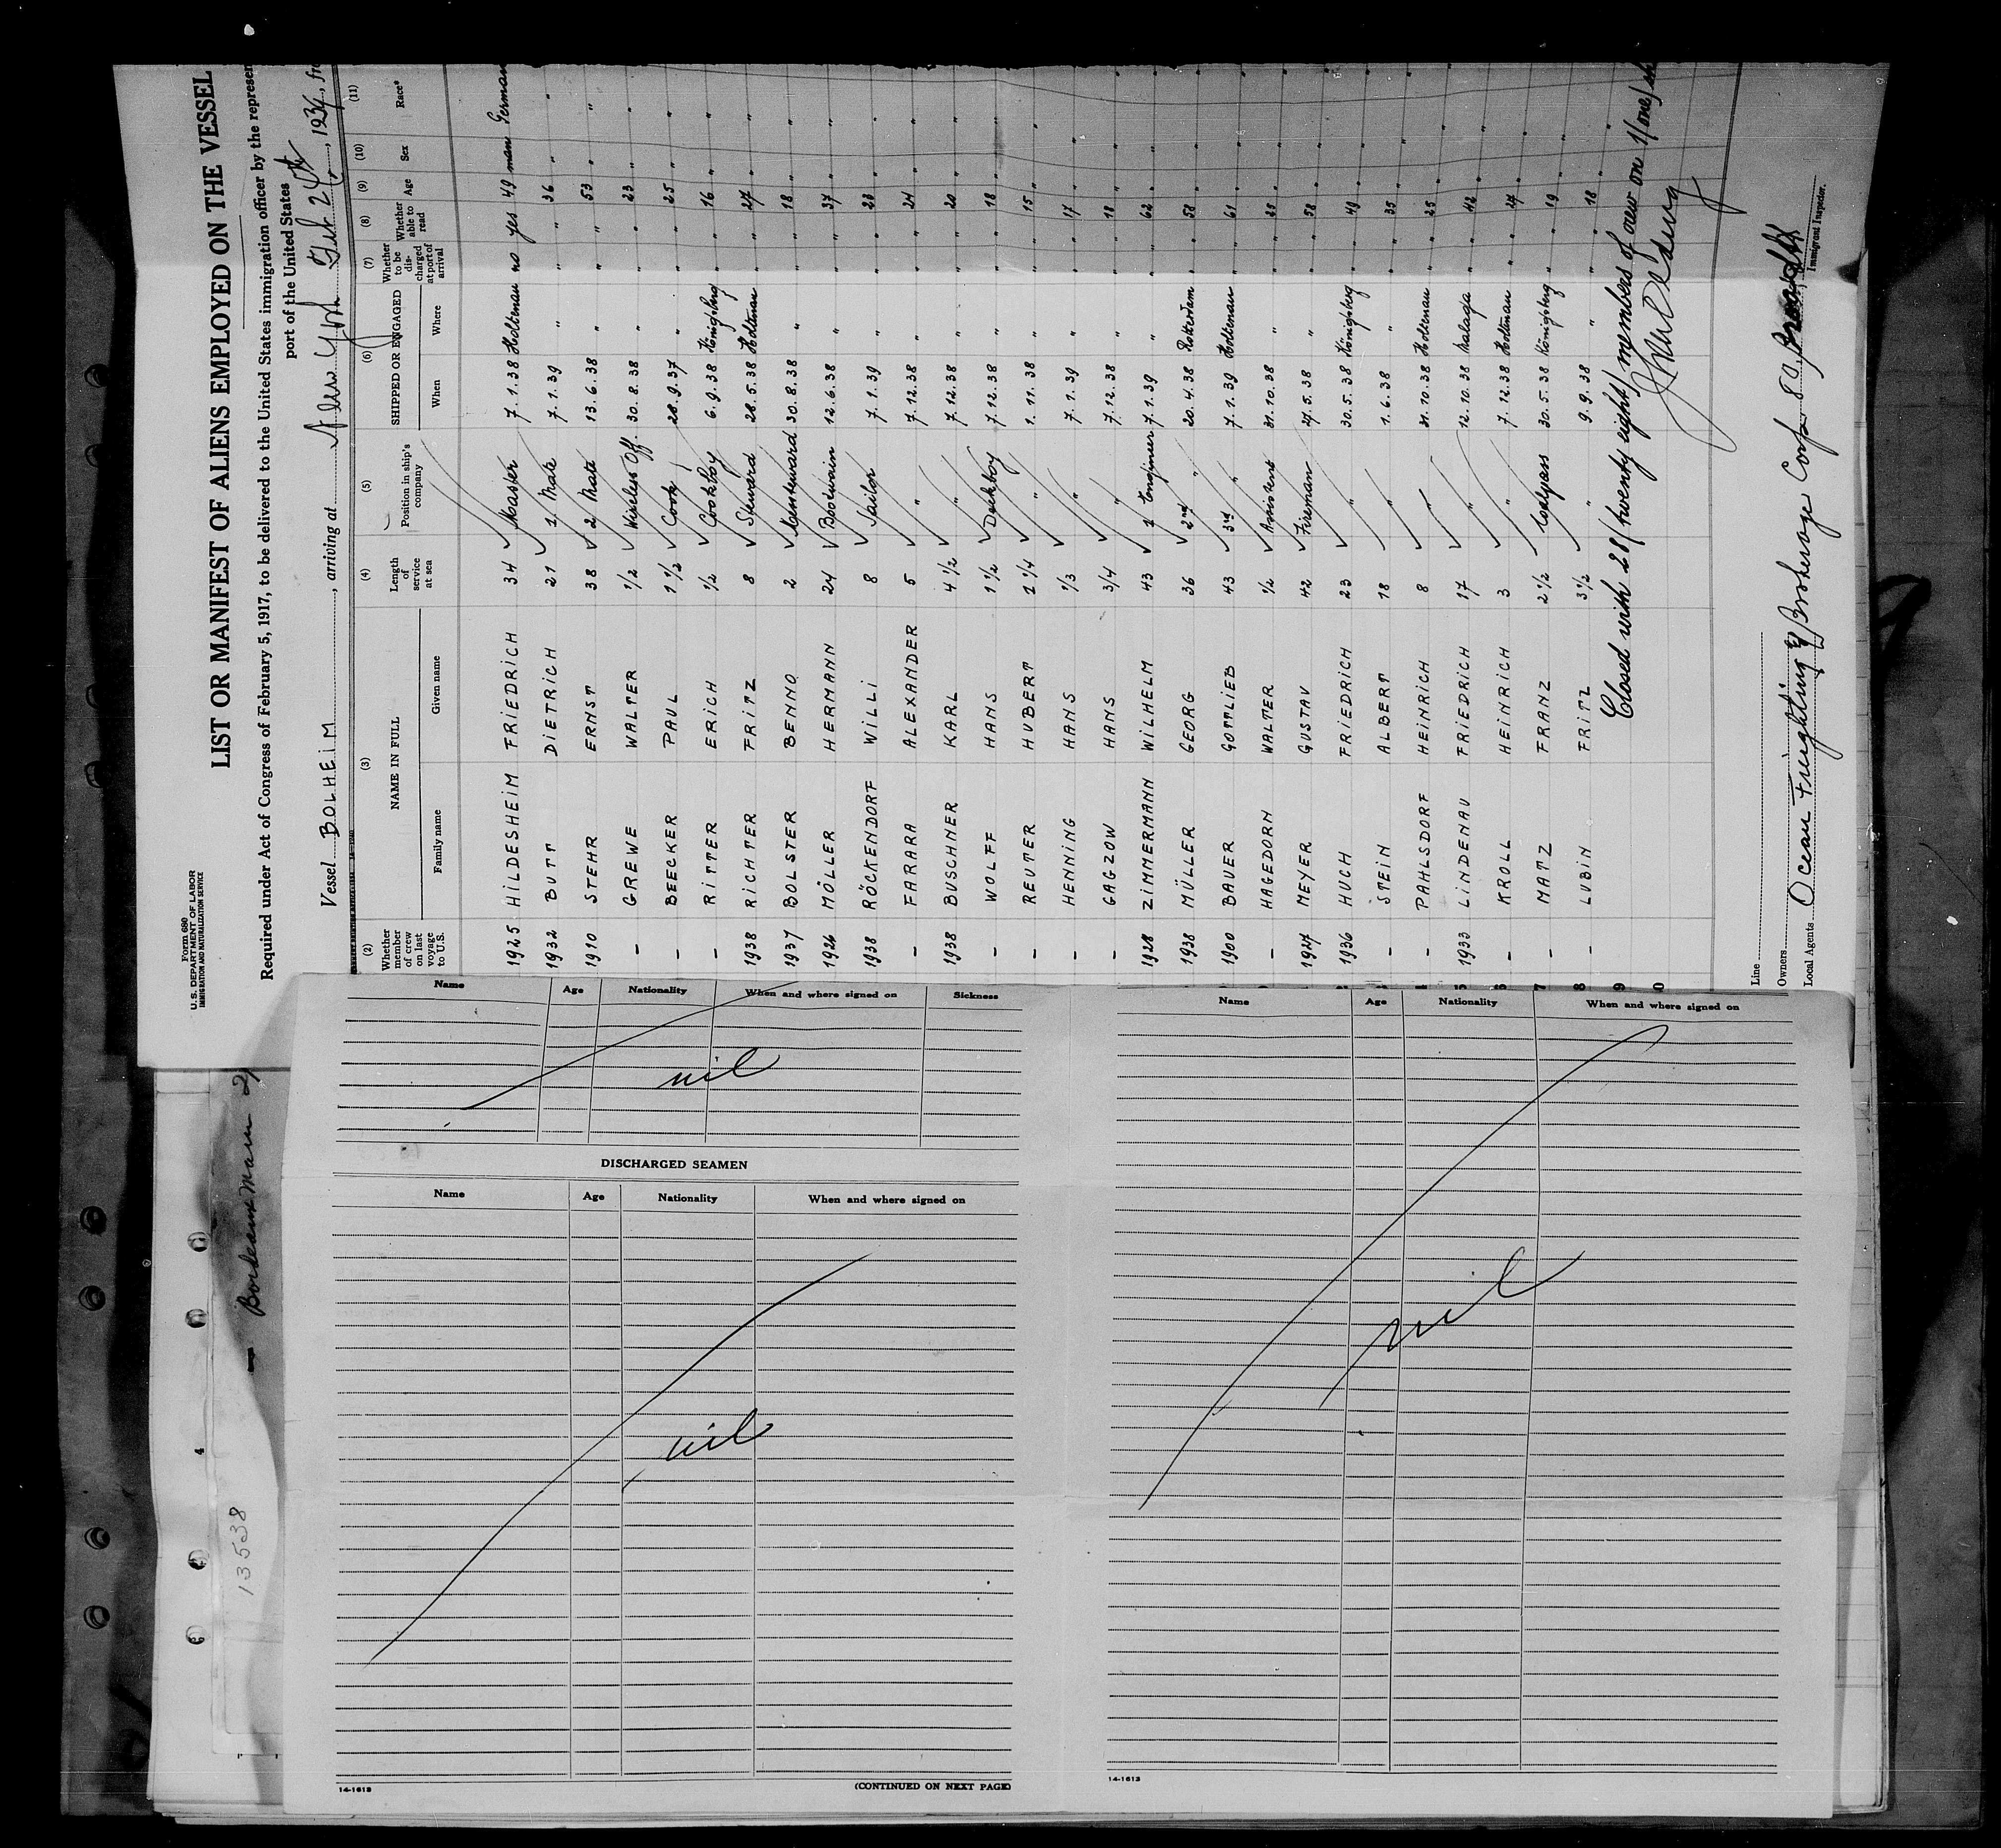 Form 680
U. S. DEPARTMENT OF LABOR
IMMIGRATION AND NATURALIZATION SERVICE
LIST OR MANIFEST OF ALIENS EMPLOYED ON THE VESSEL
Required under Act of Congress of February 5, 1917, to be delivered to the United States immigration officer by the represen
port of the United States
Vessel BOLHEIM, arriving at New York Feb 24th, 193
(2) (3) (4) (5) (6) (7) (8) (9) (10) (11)
Whether member of crew on last voyage to U.S. NAME IN FULL Family name Given name Length of service at sea Position in ship's company SHIPPED OR ENGAGED When Where Whether to be discharged at port of arrival Whether able to read Age Sex Race*
1925 HILDESHEIM FRIEDRICH 34 Master 7.1.38 Holtenau no yes 49 man German
1932 BUTT DIETRICH 21 1. Mate 7.1.39 " " " 36 " "
1910 STEHR ERNST 38 2. Mate 13.6.38 " " " 53 " "
- GREWE WALTER 1/2 Wireless Off. 30.8.38 " " " 23 " "
- BEECKER PAUL 1 1/2 Cook 28.9.37 " " " 25 " "
- RITTER ERICH 1/2 Cookboy 6.9.38 Königsbg " " 16 " "
1938 RICHTER FRITZ 8 Steward 28.5.38 Holtenau " " 27 " "
1937 BOLSTER BENNO 2 30.8.38 " " " 18 " "
1926 MÖLLER HERMANN 24 Bootswain 12.6.38 " " " 37 " "
1938 RÖCKENDORF WILLI 8 Sailor 7.1.39 " " " 23 " "
- FARRARA ALEXANDER 5 " 7.12.38 " " " 24 " "
1938 BUSCHNER KARL 4 1/2 " 7.12.38 " " " 20 " "
- WOLFF HANS 1 1/2 Deckboy 7.12.38 " " " 18 " "
- REUTER HUBERT 1 1/4 " 1.11.38 " " " 15 " "
- HENNING HANS 1/3 " 7.1.39 " " " 17 " "
- GAGZOW HANS 3/4 " 7.12.38 " " " 18 " "
1928 ZIMMERMANN WILHELM 43 1 Engineer 7.1.39 " " " 62 " "
1938 MÜLLER GEORG 36 2nd " 20.4.38 Rotterdam " " 58 " "
1900 BAUER GOTTLIEB 43 3rd " 7.1.39 Holtenau " " 61 " "
- HAGEDORN WALTER 1/2 Assistent 31.10.38 " " " 25 " "
1927 MEYER GUSTAV 42 Fireman 27.5.38 " " " 58 " "
1936 HUCH FRIEDRICH 23 " 30.5.38 Königsberg " " 49 " "
- STEIN ALBERT 18 " 1.6.38 " " " 35 " "
- PAHLSDORF HEINRICH 8 " 31.10.38 Holtenau " " 25 " "
1933 LINDENAU FRIEDRICH 17 " 12.10.38 Malaga " " 42 " "
- KROLL HEINRICH 3 " 7.12.38 Holtenau " " 27 " "
- MATZ FRANZ 2 1/2 30.5.38 Königsbg " " 19 " "
- LUBIN FRITZ 3 1/2 " 9.9.38 " " " 18 " "
Closed with 28/twenty eight/ members of crew on 1/one/ sh
Line
Owners
Local Agents Ocean Freighting & Brokerage Corp 80 Broad St
Immigrant Inspector.
Bordeaux
13538
Name Age Nationality When and where signed on Sickness
nil
DISCHARGED SEAMEN
Name Age Nationality When and where signed on
nil
14-1613
(CONTINUED ON NEXT PAGE)
Name Age Nationality When and where signed on
nil
14-1613